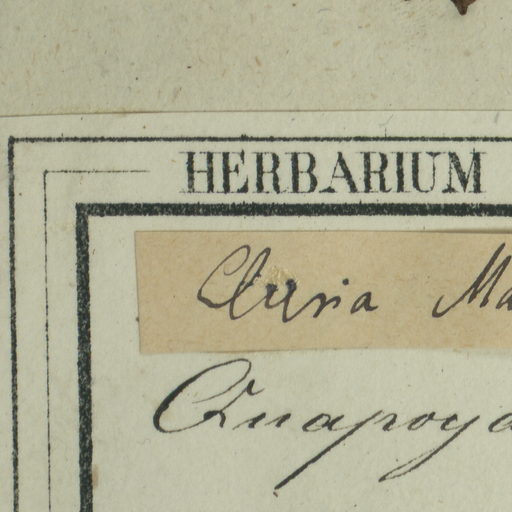 HERBARIUM
Clusia Ma
Quapoya